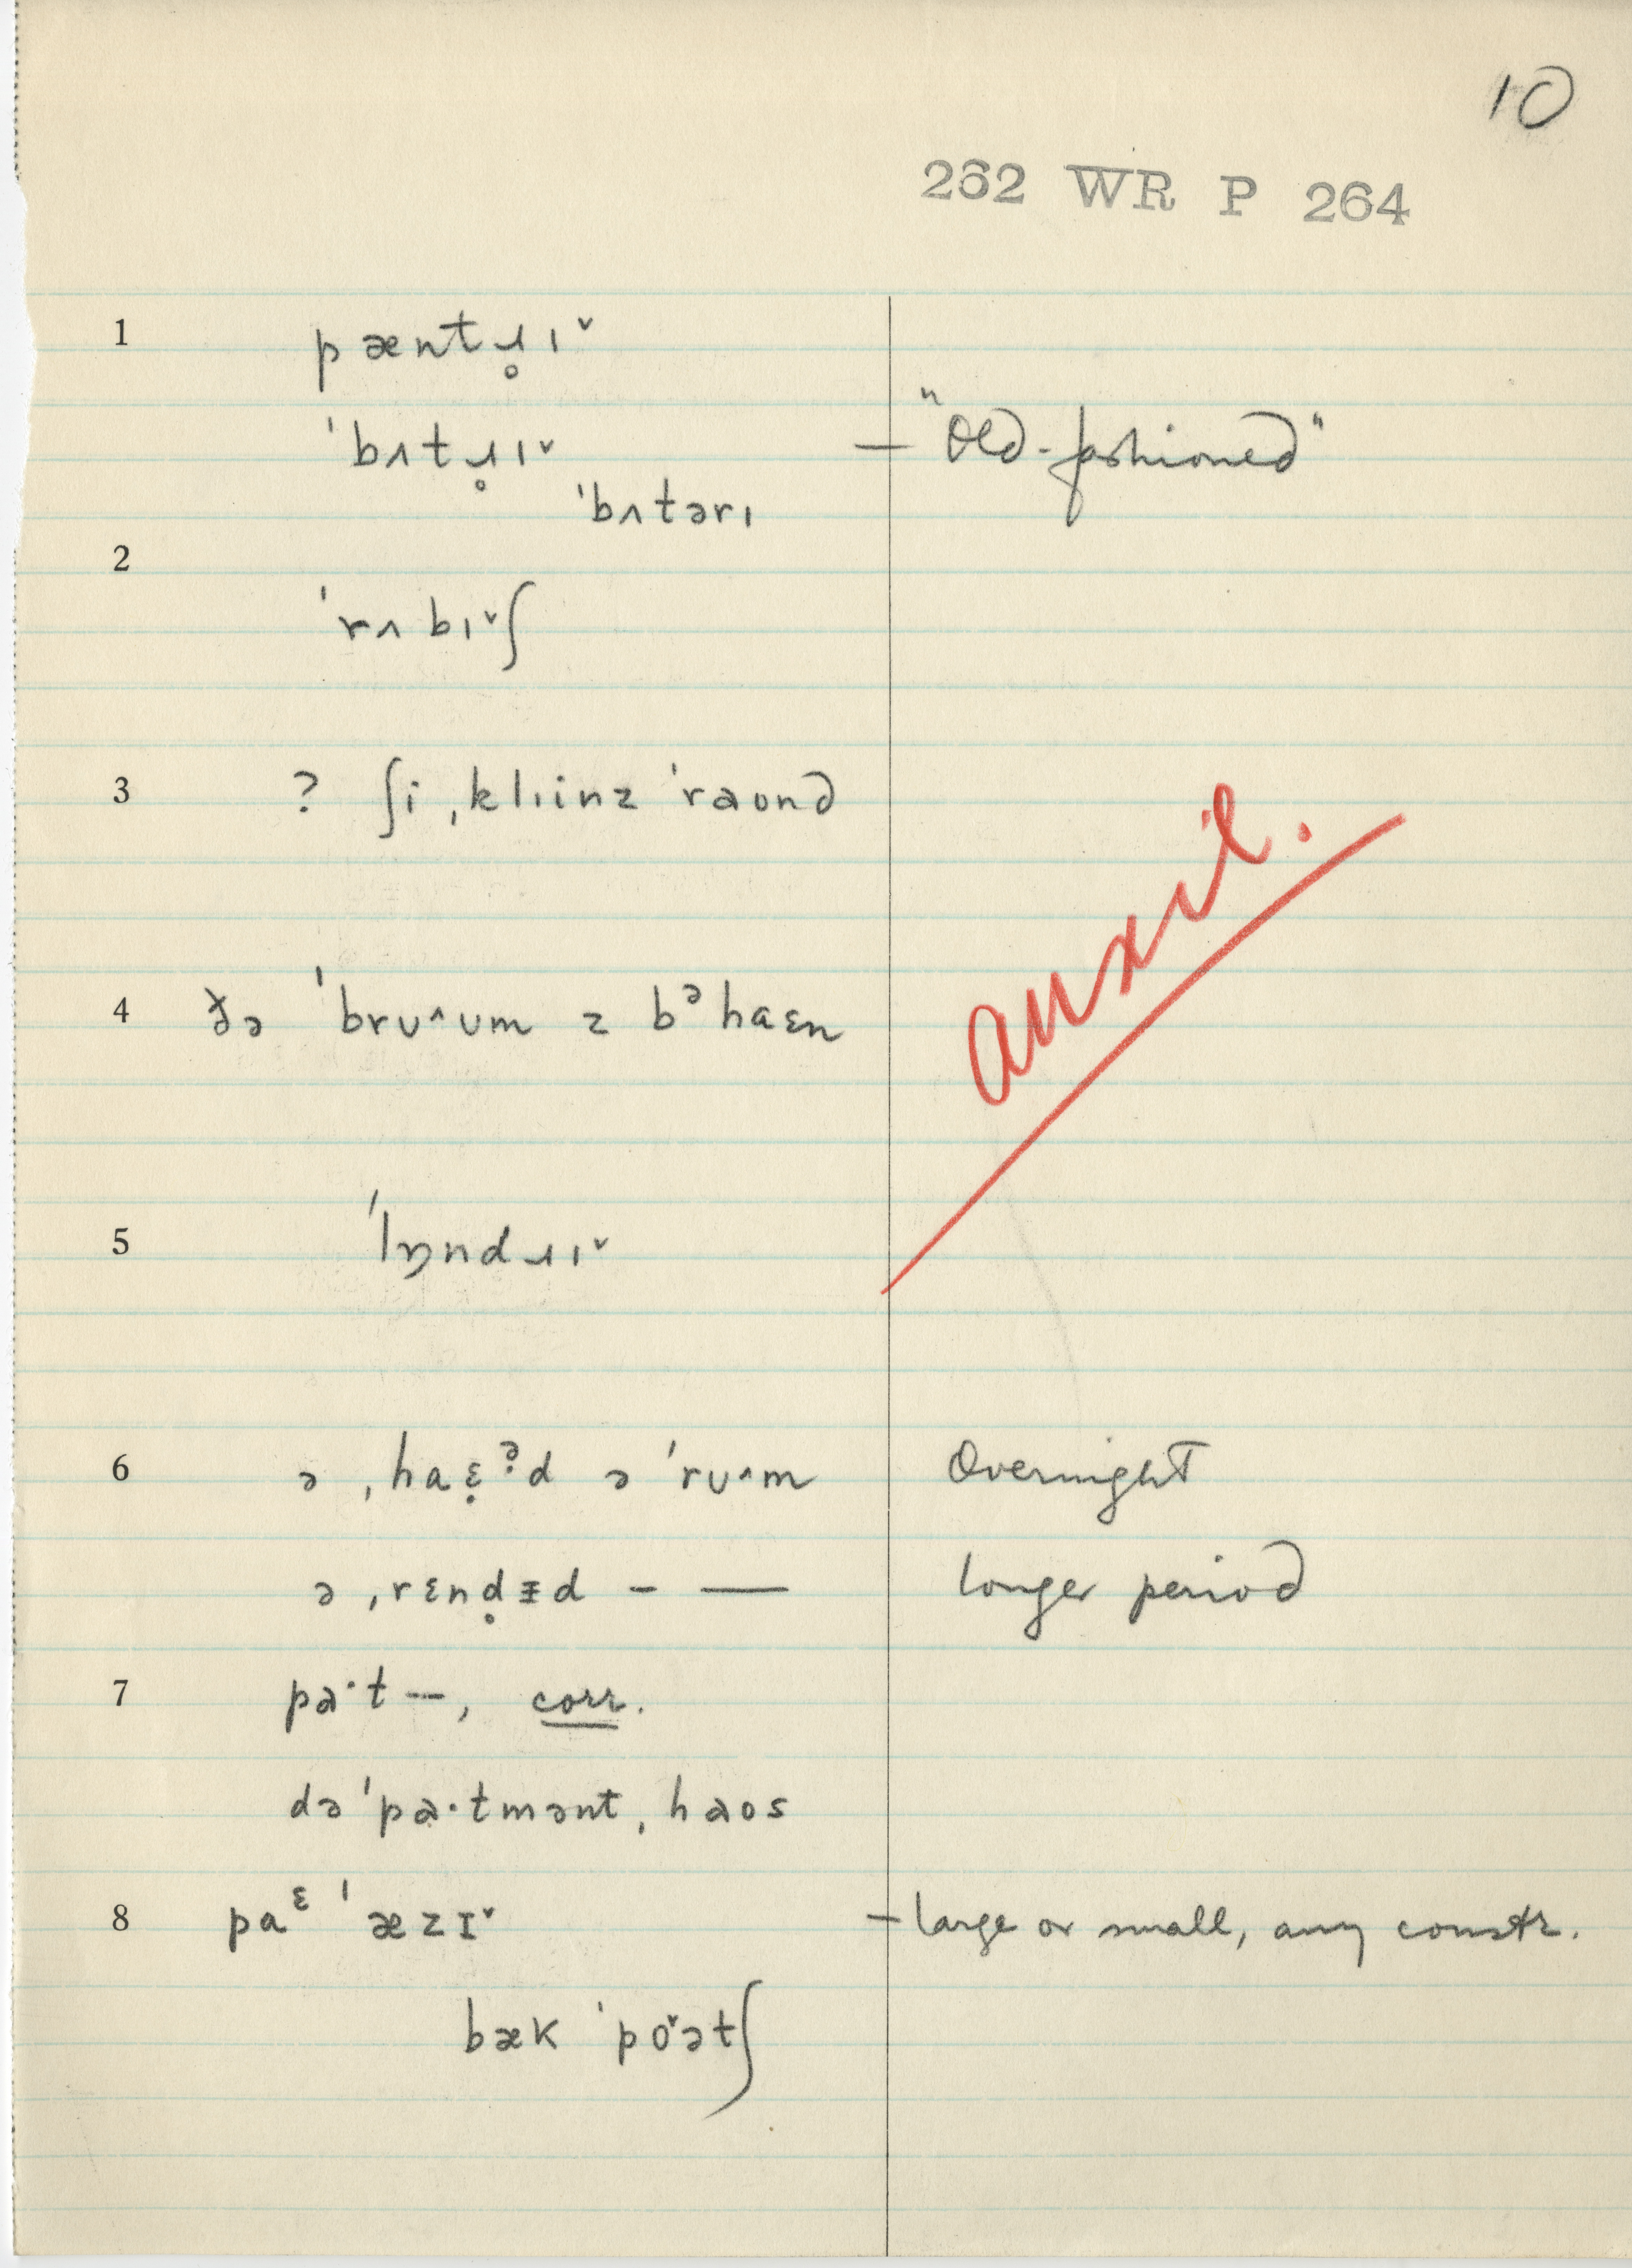 10
262 WR P 264
1 pæntɹ̥ɪˇ
ˈbʌtɹ̥ɪˇ — "Old-fashioned"
ˈbʌtərɪ
2
ˈrʌbɪˇʃ
3 ? ʃi ˌklɪinz ˈraʊnd
auxil.
4 ðə ˈbrʊ^ʊm z bᵊhaɛn
5 ˈlɒndɹɪˇ
6 ə ˌhaɛ̣ˀd ə ˈrʊ^m Overnight
ə ˌrɛnd̥ɪd – — longer period
7 pa·t –, corr.
dəˈpa·tmənt ˌhaos
8 paᵋ ˈæzɪˇ – large or small, any constr.
bæk ˈpoˇətʃ